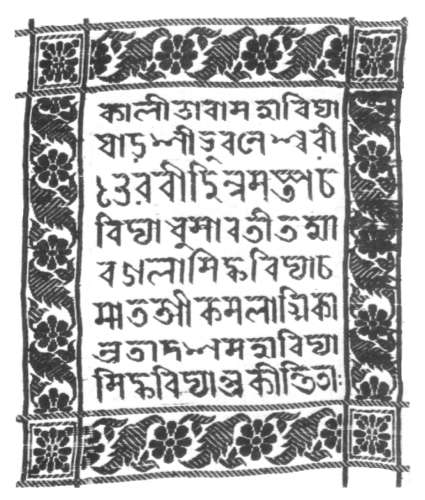 কালীতারামহাবিদ্যা
ষোড়শীভুবনেশ্বরী
ভৈরবীছিন্নমস্তাচ
বিদ্যাধুমাবতীতথা
বগলাসিদ্ধবিদ্যাচ
মাতঙ্গীকমলাত্মিকা
এতাদশমহাবিদ্যা
সিদ্ধবিদ্যাপ্রকীর্ত্তিতাঃ